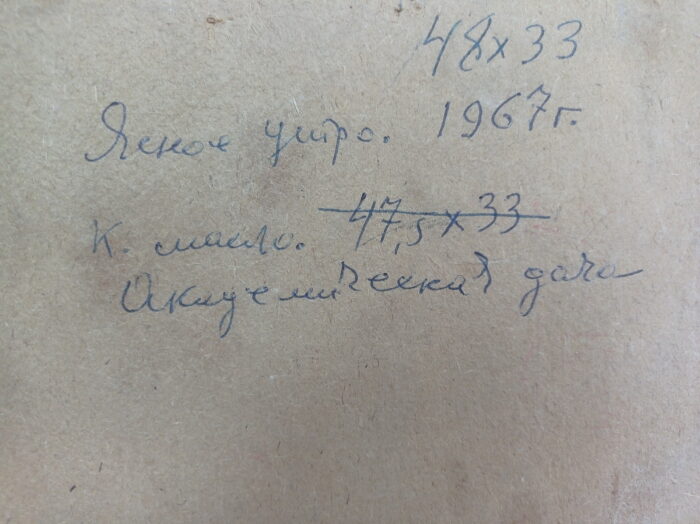 48х33
Ясное утро. 1967г.
К. масло. 47,5 х 33
Академическая дача